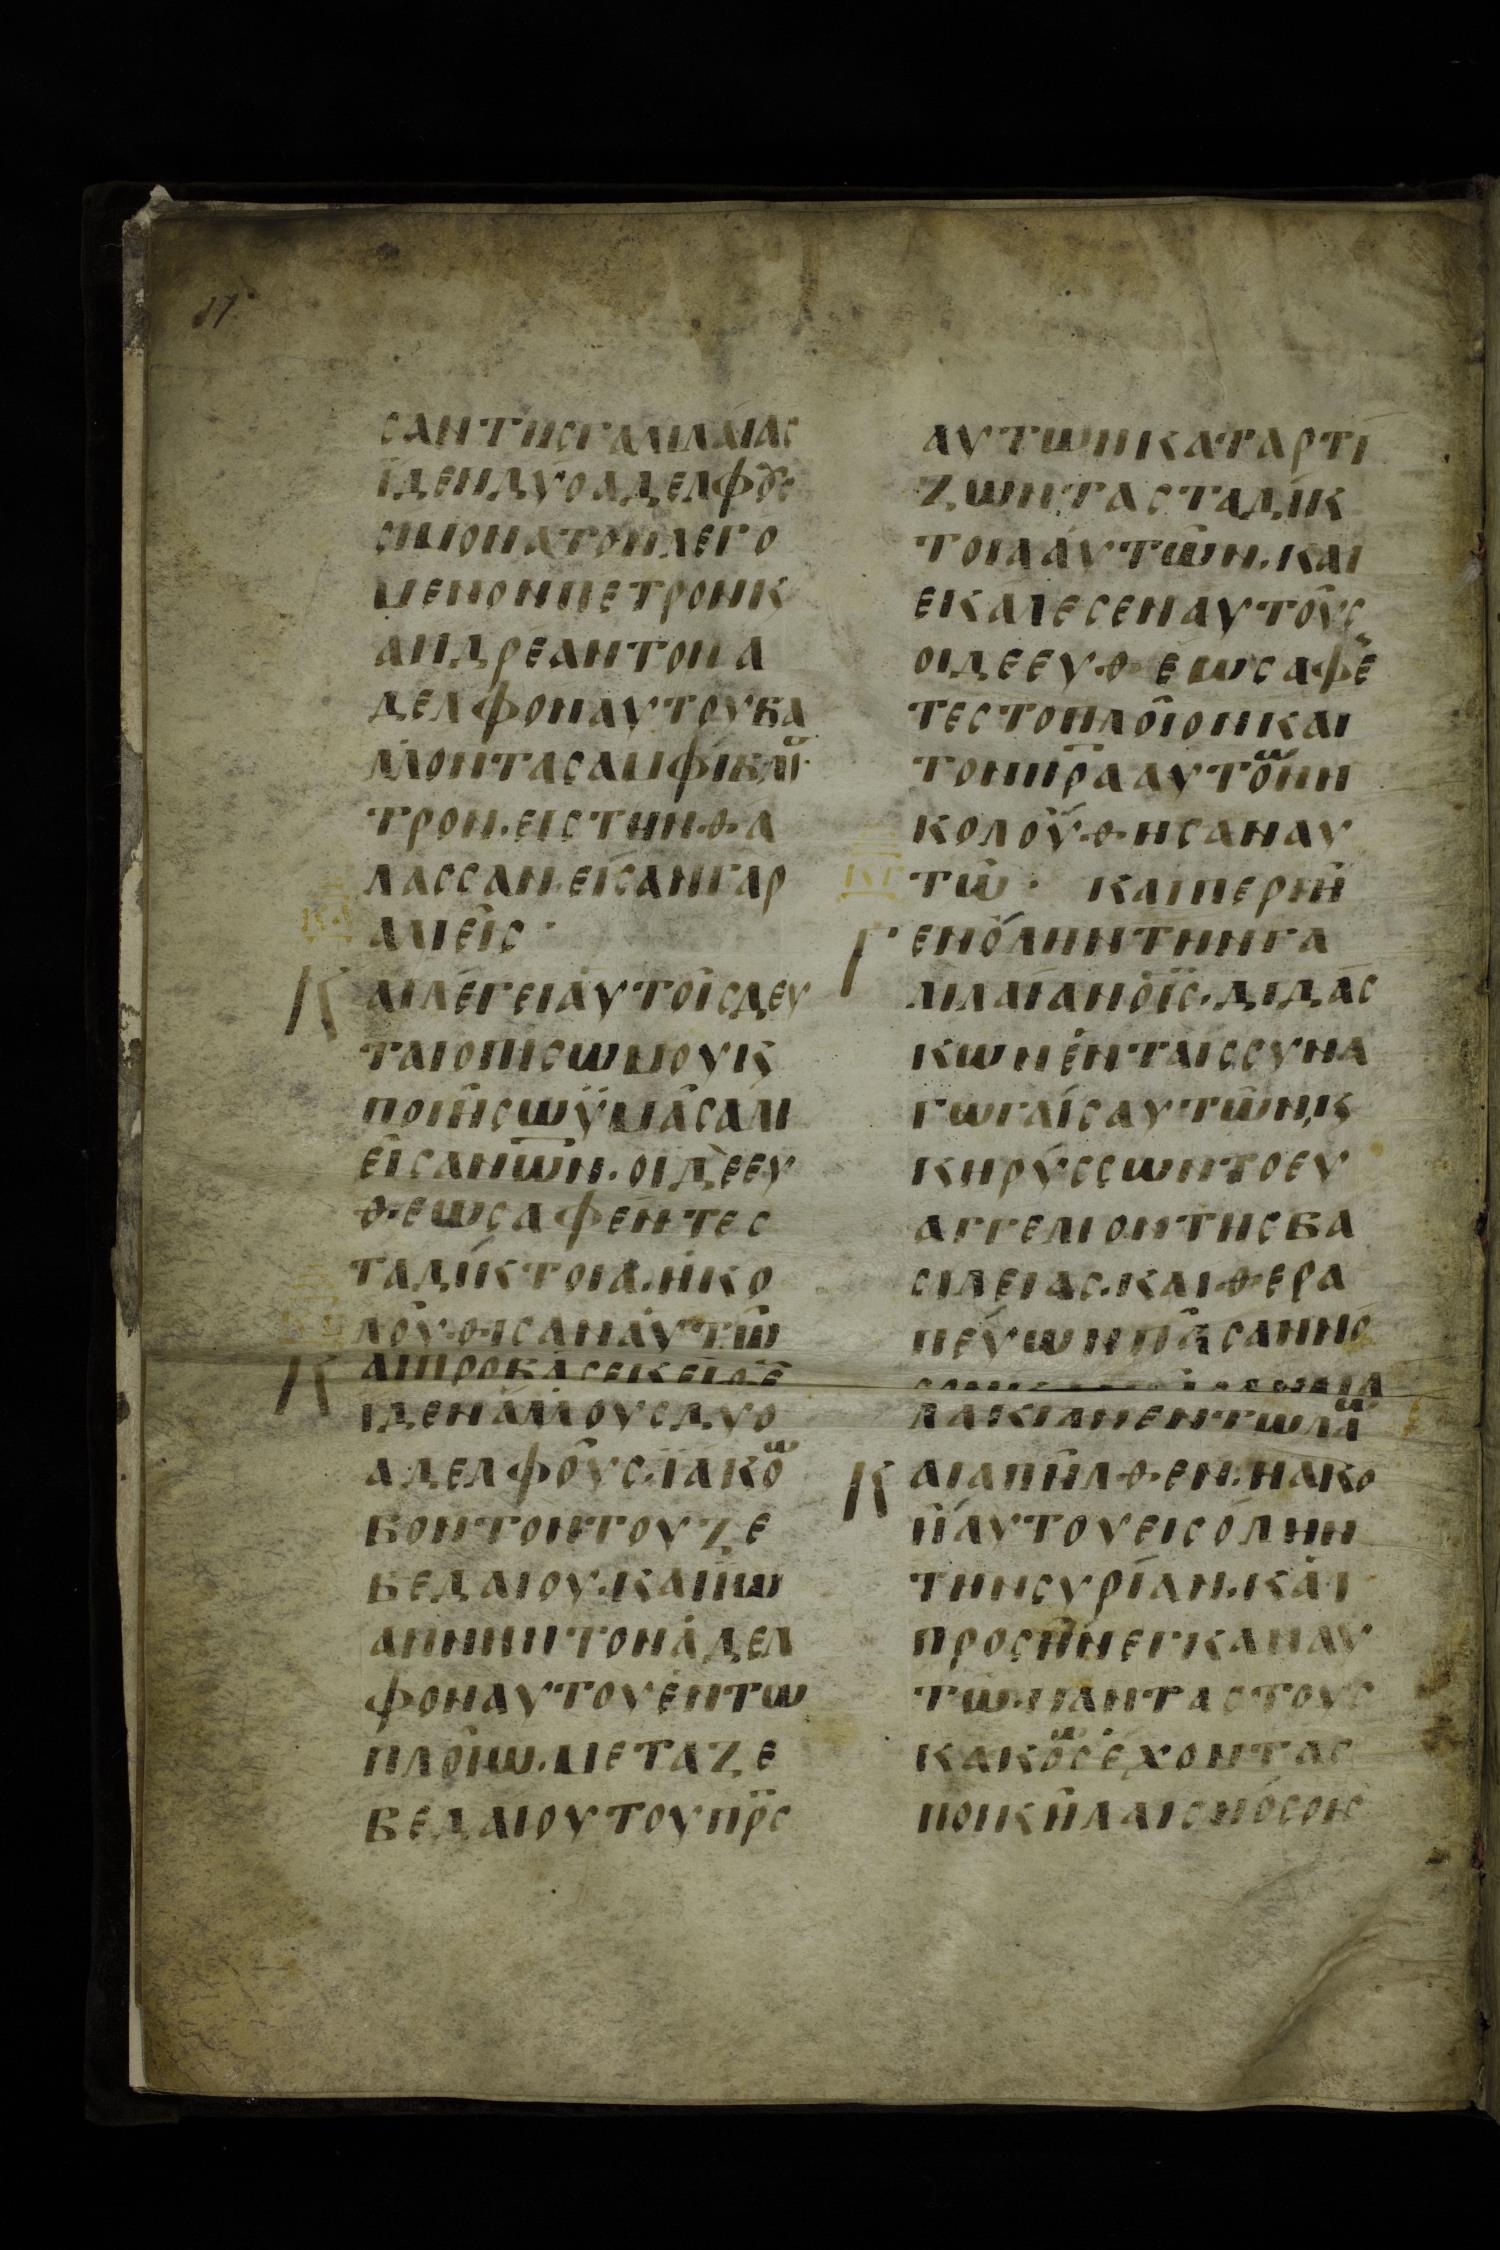 ϲαντηϲγαλιλαίαϲ
ϊδενδυοαδελφȣϲ
ϲιμοναυτονλεγο
μενονπετρονκ
ανδρέαντονα
δελφοναυτουβα
λλονταϲαμφίβλη
τρον·ειϲτηνθα
λαϲϲαν·εἰϲανγαρ
αλιεῖϲ·
κα
Καιλέγειἀυτοῖϲδευ
ταιοπιϲωμουκ
ποιηϲωϋμᾶϲαλι
εῖϲανων·οιδὲευ
θεωϲαφέντεϲ
ταδίκτοια·ἠκο
λούθιϲανἀυτῶ
Καιπροβὰϲεκεῖθε
ϊδενάλλουϲδυο
αδελφοῦϲ·ϊακὸω
βοντοντουζε
βεδαιου·καιϊω
αννηντονἀδελ
φοναυτουἐντω
πλοῖω·μεταζε
βεδαιουτουπρϲ
αυτωνκαταρτι
ζωνταϲταδίκ
τοιαἀυτῶν·και
εκαλεϲεναυτοῦϲ
οιδεευθεωϲαφέ
τεϲτοπλοῖονκαι
τονπραаυτὸωνη
κολοὺθηϲαναυ
κγ
τῶ· Καιπεριῆ
Γενὅληντηνγα
λιλαίανὁιϲ·διδαϲ
κωνἐνταιϲϲυνα
γωγαῖϲαυτῶν,κ
κηρύϲϲωντοευ
αγγελιοντηϲβα
ϲιλειαϲ·καιθερα
πεύωνπᾶϲαννὸ
λακιανεντωλαω
Καιαπῆλθεν·ηακο
ὴἀυτουειϲόλην
τηνϲυρίαν·κὰι
προϲήνεγκαναυ
τῶ·πανταϲτουϲ
κακὸωϲἐχονταϲ
ποικήλαιϲνόϲοιϲ